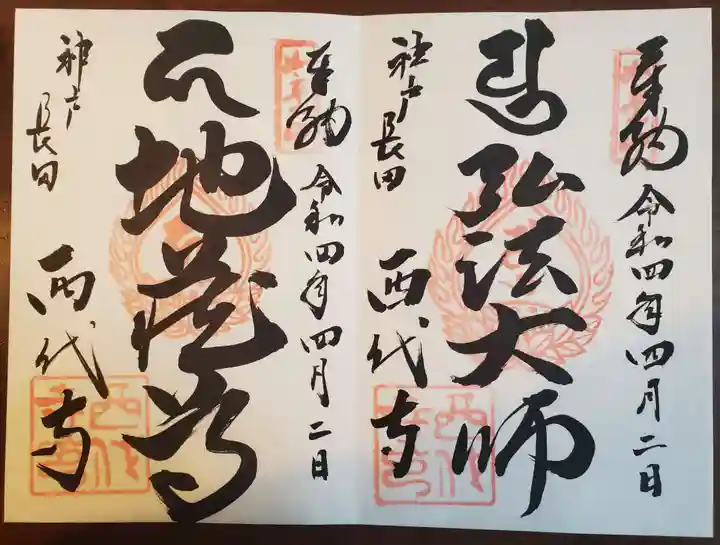 奉納 令和四年四月二日
弘法大師
神戸長田 西代寺
奉納 令和四年四月二日
地蔵尊
神戸長田 西代寺
西代寺
西代寺